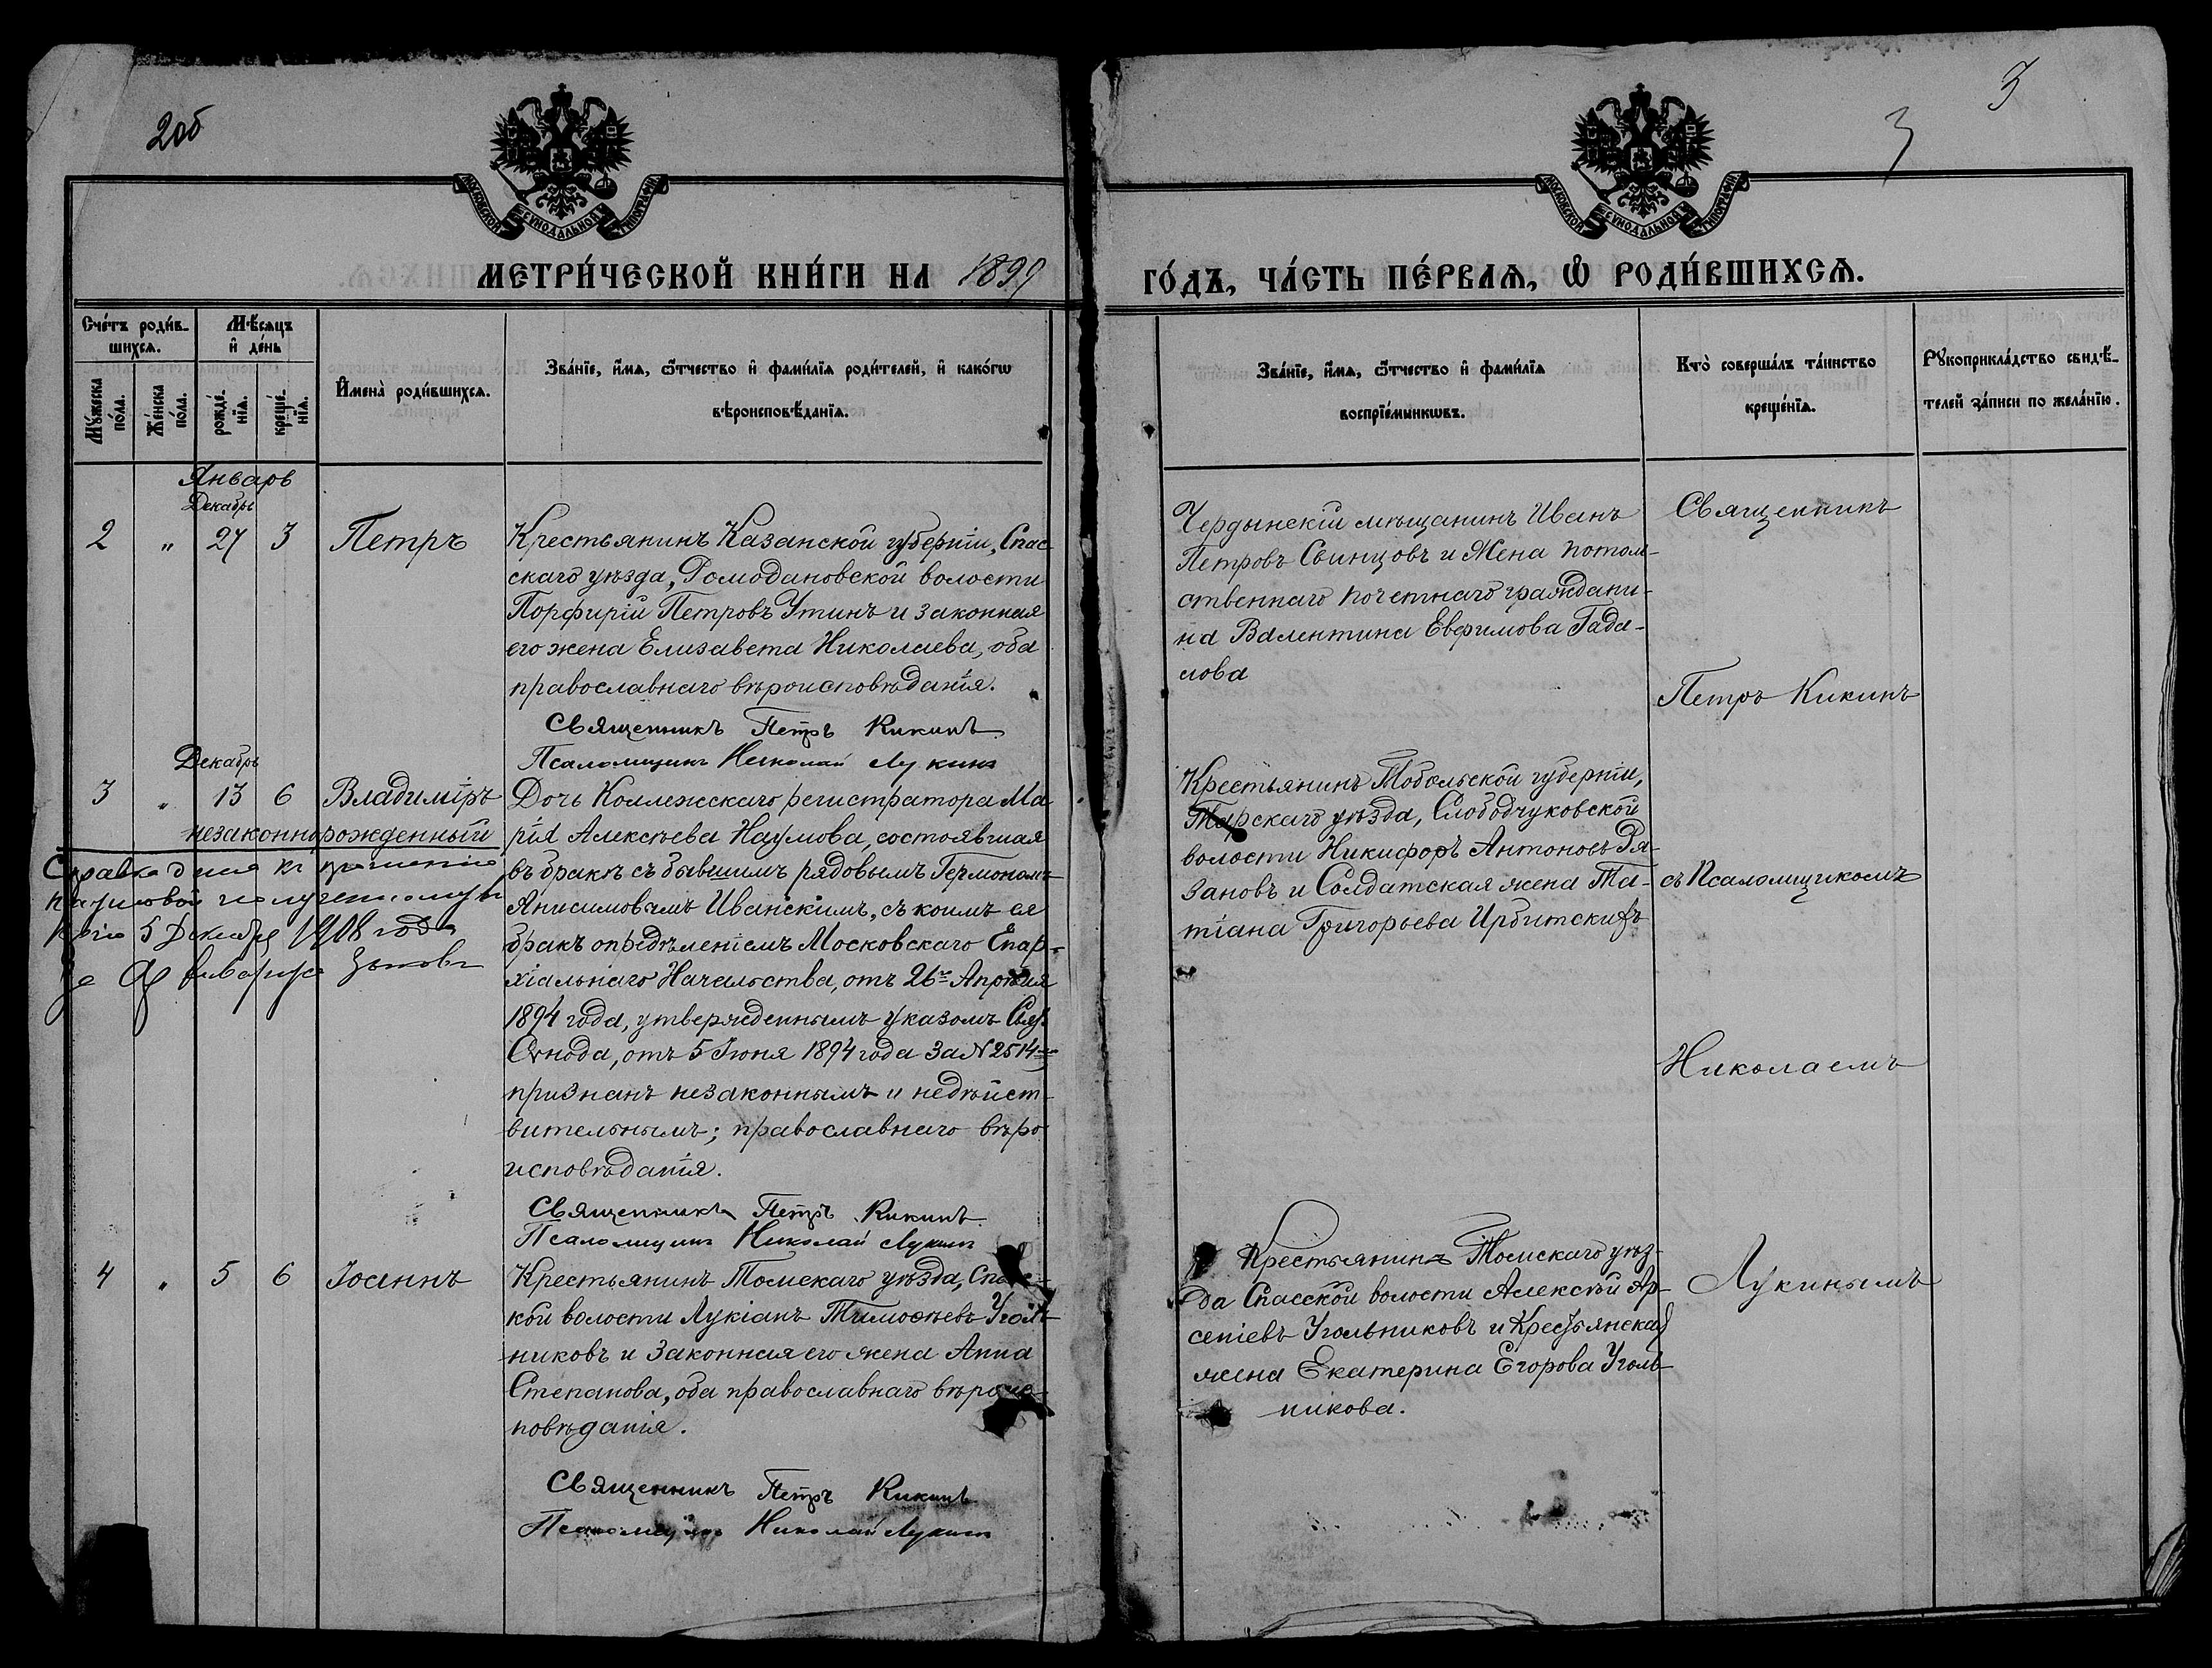 2об
3
3
МОСКОВСКОЙ СѴНОДАЛЬНОЙ ТИПОГРАФІИ
МОСКОВСКОЙ СѴНОДАЛЬНОЙ ТИПОГРАФІИ
МЕТРИ́ЧЕСКОЙ КНИ́ГИ НА 1899
ГО́ДЪ, ЧА́СТЬ ПЕ́РВАѦ, Ѡ҆ РОДИ́ВШИХСѦ.
Сче́тъ роди́в-
шихсѧ.
Мꙋ́жеска
по́ла.
Же́нска
по́ла.
Мѣ́сѧцъ
и҆ де́нь
рожде́-
нїѧ.
креще́-
нїѧ.
И҆мена̀ роди́вшихсѧ.
Зва́нїе, и҆́мѧ, ѻ҆́тчество и҆ фами́лїѧ роди́телей, и҆ како́гѡ
вѣроисповѣ́данїѧ.
Зва́нїе, и҆́мѧ, ѻ҆́тчество и҆ фами́лїѧ
воспрїе́мникѡвъ.
Кто̀ соверша́лъ та́инство
креще́нїѧ.
Рꙋкоприкла́дство свидѣ́-
телей за́писи по жела́нїю.
Январь
Декабрь
2 " 27 3 Петръ
Крестьянинъ Казанской губерніи, Спас
скаго уѣзда, Ромодановской волости
Порфирій Петровъ Утинъ и законная
его жена Елизавета Николаева, оба
православнаго вѣроисповѣданія.
Священникъ Петръ Кикинъ
Псаломщикъ Николай Лукинъ
Чердынскій мѣщанинъ Иванъ
Петровъ Свинцовъ и Жена потом-
ственнаго почетнаго граждани-
на Валентина Евфимова Гада-
лова
Священникъ
Петръ Кикинъ
Декабрь
3 " 13 6 Владиміръ
незаконнорожденный
Справка дана къ прошенію
5 Декабря 1908 года
Дочь Коллежскаго регистратора Ма
рія Алексѣева Наумова, состоявшая
въ бракѣ съ бывшимъ рядовымъ Гермономъ
Анисимовымъ Иванскимъ, съ коимъ ея
бракъ опредѣленіемъ Московскаго Епар-
хіальнаго Начальства, отъ 26го Апрѣля
1894 года, утвержденнымъ указомъ Свят
Сѵнода, отъ 5 Іюня 1894 года за № 2514
признанъ незаконнымъ и недѣйст-
вительнымъ; православнаго вѣро
исповѣданія.
Священникъ Петръ Кикинъ
Псаломщикъ Николай Лукинъ
Крестьянинъ Тобольской губерніи,
Тарскаго уѣзда, Слободчуковской
волости Никифоръ Антоновъ Ря-
зановъ и Солдатская жена Та-
тіана Григорьева Ирбитскихъ
съ Псаломщикомъ
Николаемъ
4 " 5 6 Іоаннъ
Крестьянинъ Томскаго уѣзда, Спасс-
кой волости Лукіанъ Тимоѳеевъ Уголь
никовъ и Законная его жена Анна
Степанова, оба православнаго вѣроис-
повѣданія.
Священникъ Петръ Кикинъ
Псаломщикъ Николай Лукинъ
Крестьянинъ Томскаго уѣз-
да Спасской волости Алексѣй Ар-
сеніевъ Угольниковъ и Крестьянская
жена Екатерина Егорова Уголь-
никова.
Лукинымъ